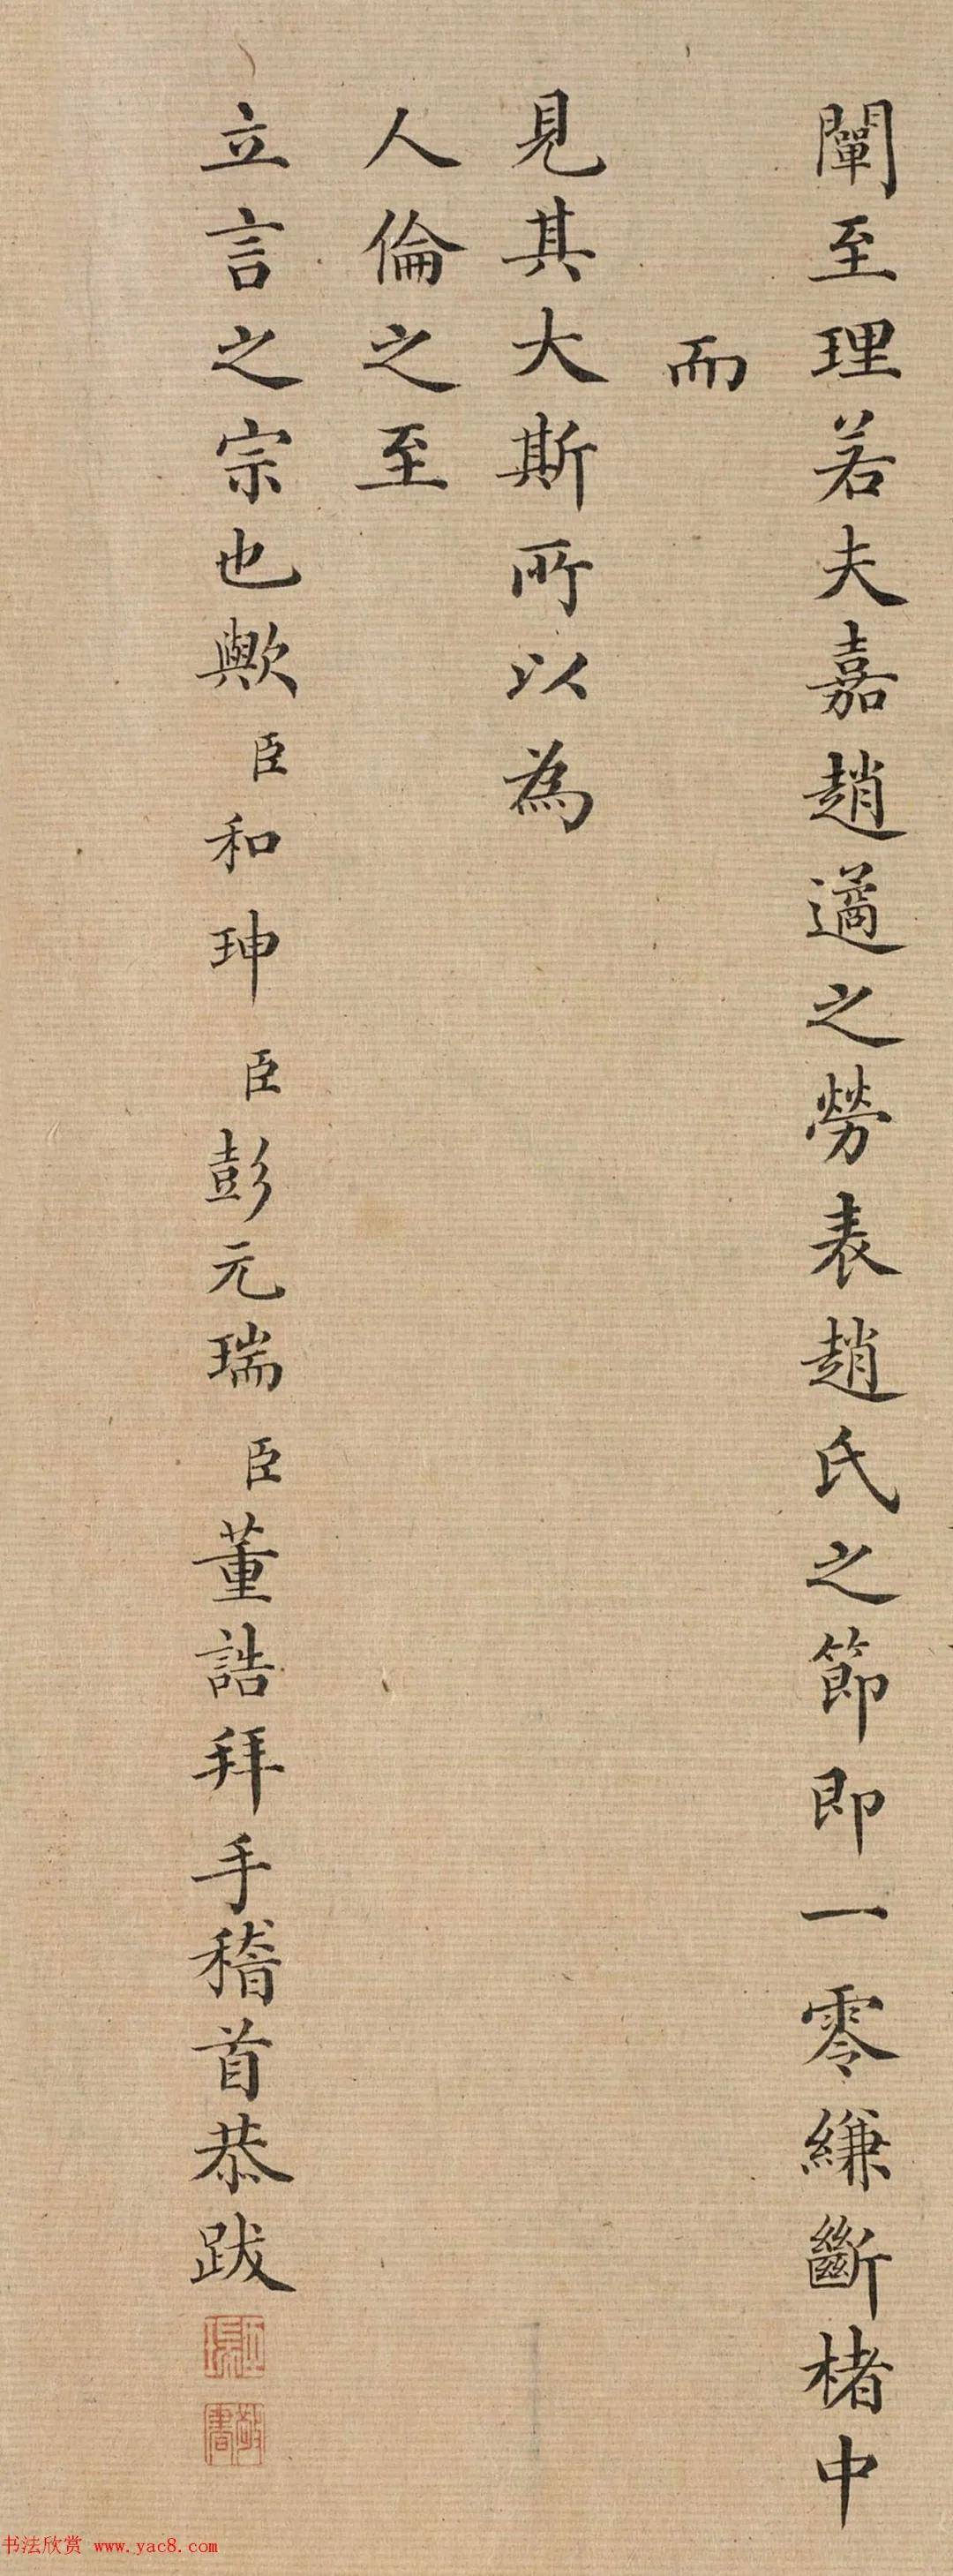 闡至理若夫嘉趙遹之勞表趙氏之節即一零縑斷楮中
而
見其大斯所以為
人倫之至
立言之宗也歟臣和珅臣彭元瑞臣董誥拜手稽首恭跋
敬書
书法欣赏 www.yac8.com